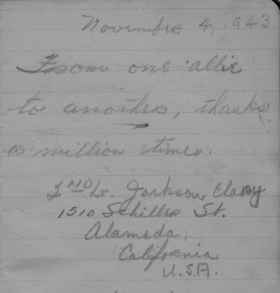 November 4, 1943
From one allie
to another, thanks
a million times.
2ND Lt. Jackson,
1510 Schiller St.
Alameda,
California
U.S.A.